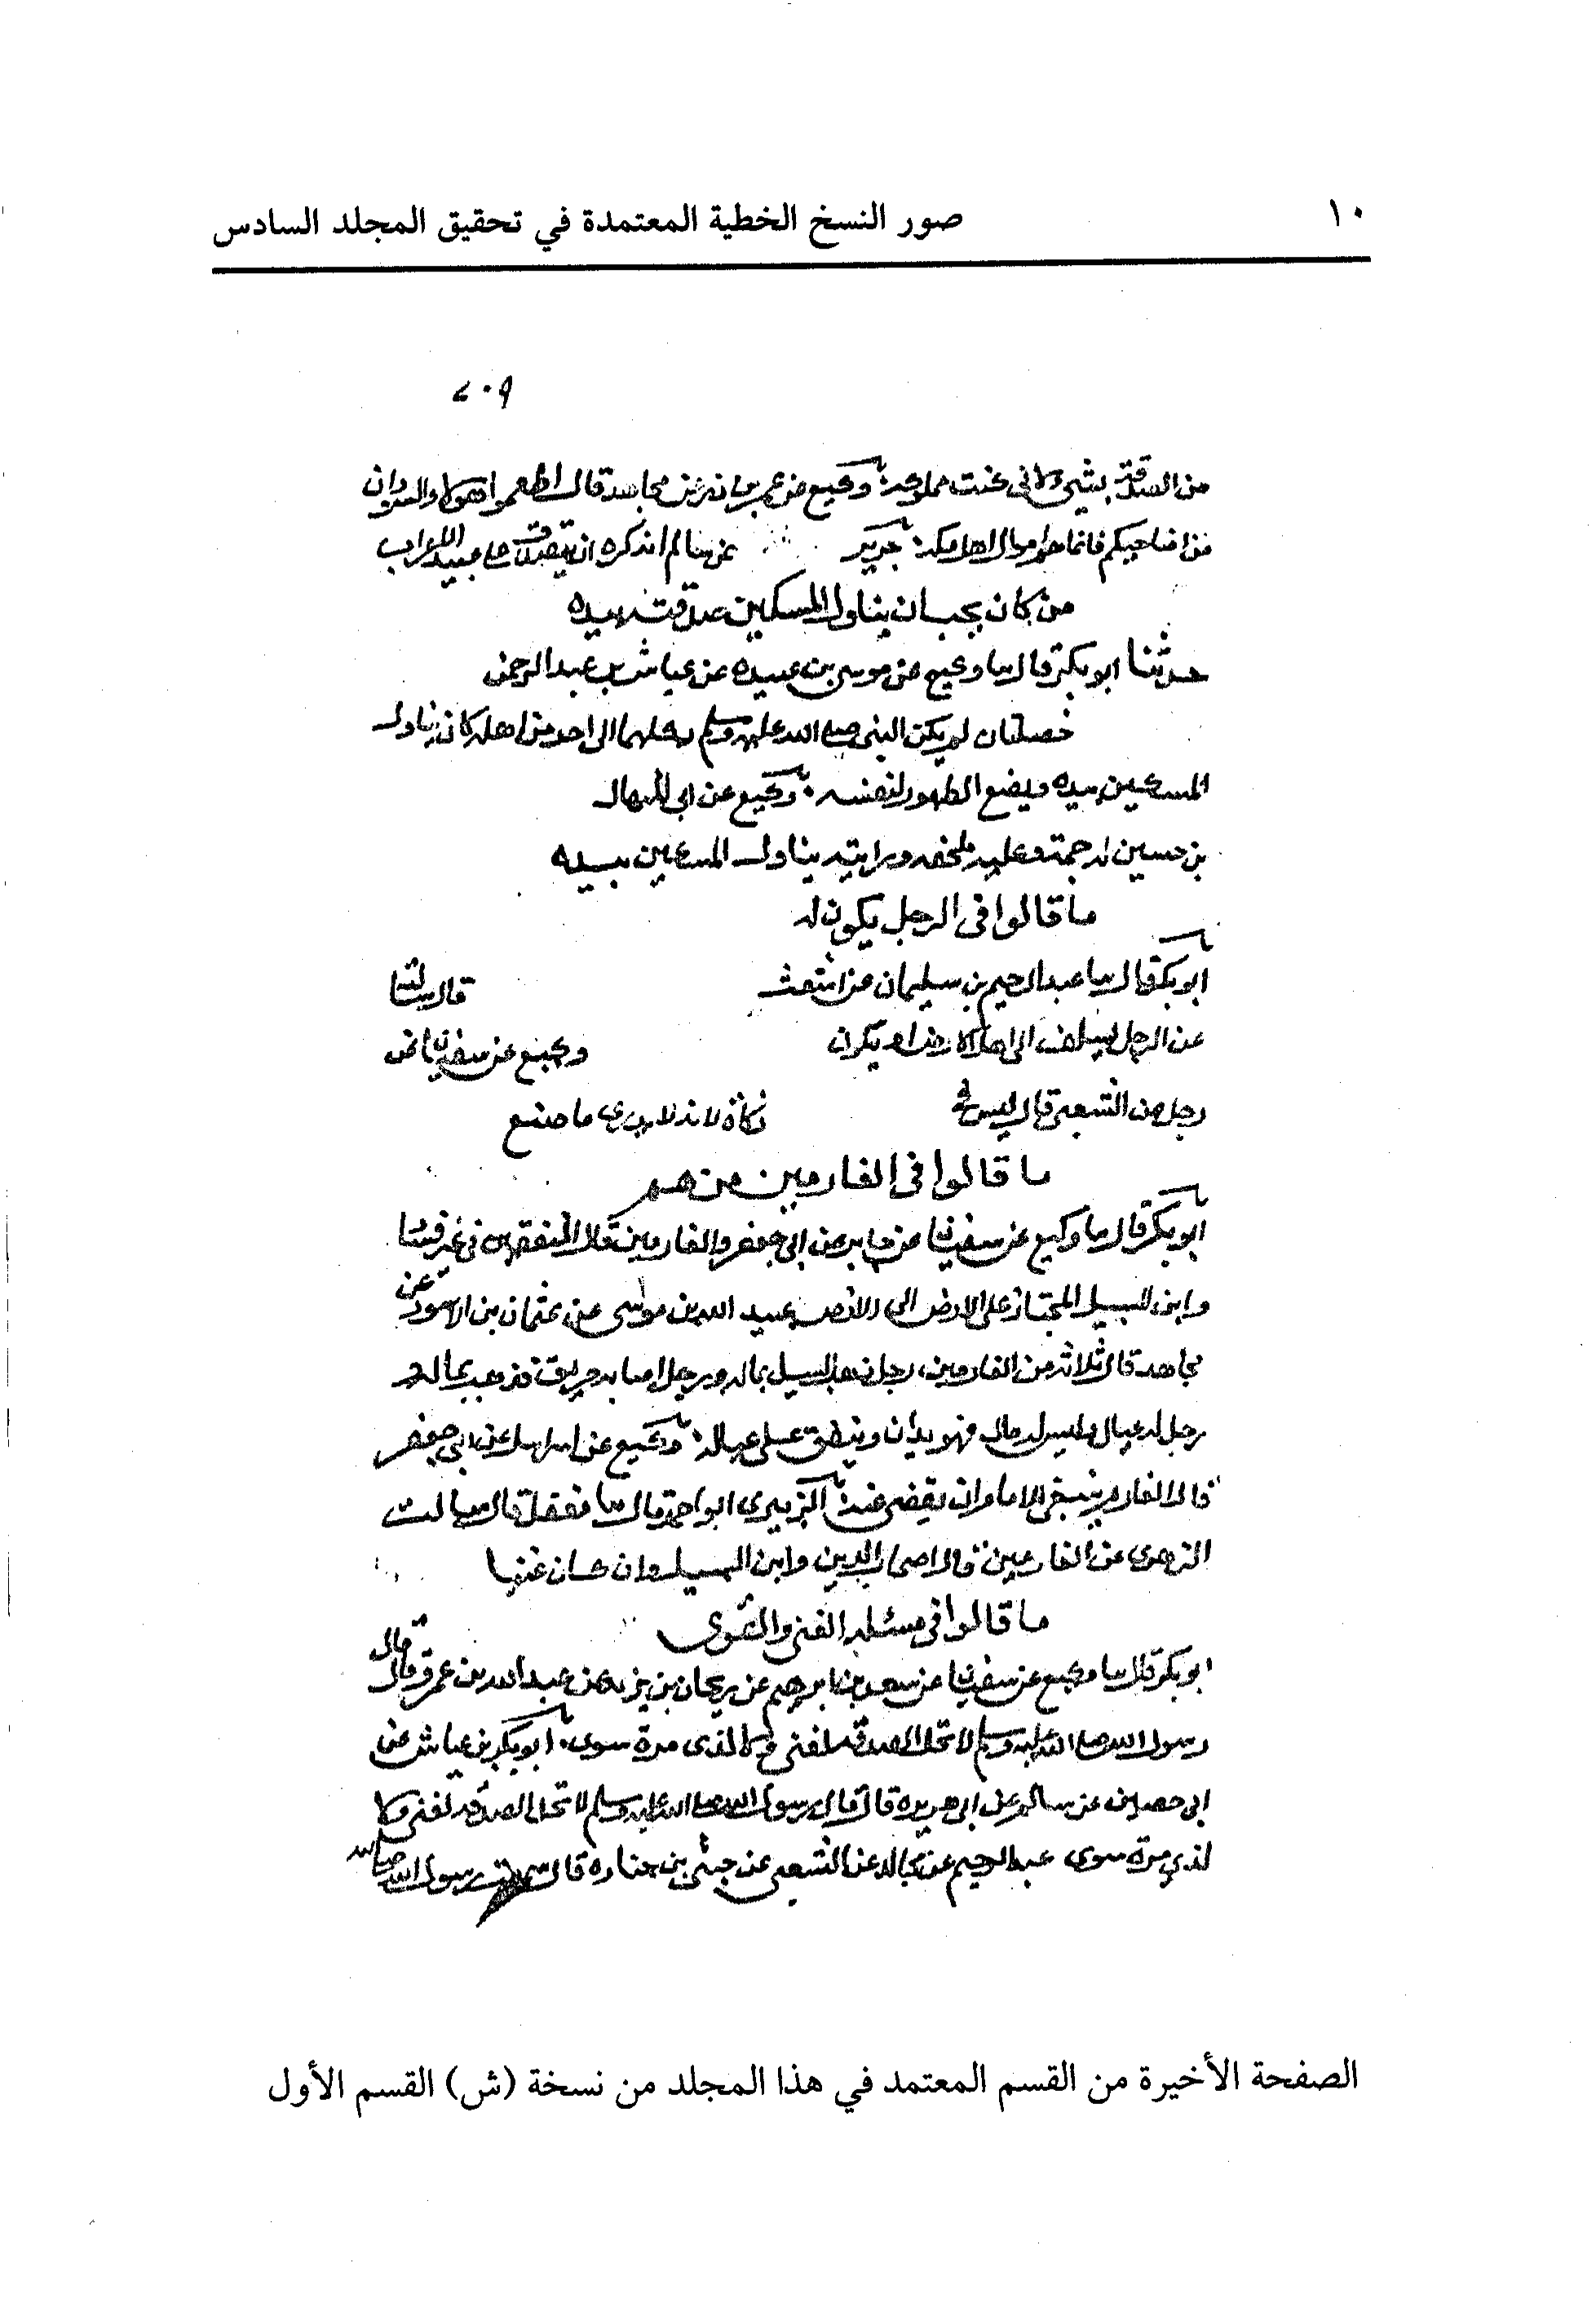 ١٠ صور النسخ الخطية المعتمدة في تحقيق المجلد السادس
٢٠٩
من الصدقة بشي ولا في عنت مملوكه وكيع عن عمر بن عن مجاهد قال اطعموا هولا والسودان
من اضاحيكم فانما هم اموال اهل مكة جرير عن سالم انه كره ان يتصدق على عبيد الاعراب
من كان يحب ان يناول المسكين صدقته بيده
حدثنا ابو بكر قال وكيع عن موسى بن عبيده عن عباس بن عبد الرحمن
خصلتان لم يكن النبي صلى الله عليه وسلم الى احد من اهله كان يناول
المسكين بيده ويضع الطهور لنفسه وكيع عن ابي المنهال
بن حسين له جمة وعليه ملحفه ورايته يناول المسكين بيده
ما قالوا في الرجل يكون له
ابو بكر قال عبد الرحيم بن سليمان عن اشعث قال سالنا
عن الرجل يسلف الى اهل الارض او يكون وكيع عن سفيان عن
رجل عن الشعبي قال ليس في زكاة لانه لا يدري ما صنع
ما قالوا في الغارمين من هم
ابو بكر قال وكيع عن سفيان عن جابر عن ابي جعفر والغارمين قال المنفقين في غير فساد
وابن السبيل المجتاز على الارض الى الارض عبيد الله بن موسى عن عثمان بن الاسود عن
مجاهد قال ثلاثة من الغارمين رجل ذهب السيل بماله ورجل اصابه حريق فذهب بماله و
رجل له عيال وليس له مال فهو يدان وينفق على عياله وكيع عن عن ابي جعفر
قال الغارم ينبغي للامام ان يقضي عنه الزبيري ابو احمد قال معقل قال سالت
الزهري عن الغارمين قال اصحاب الدين وابن السبيل وان كان غنيا
ما قالوا في مسئله الغني والقوي
ابو بكر قال وكيع عن سفيان عن سعد بن ابرهيم عن ريحان بن يزيد عن عبد الله بن عمرو قال قال
رسول الله صلى الله عليه وسلم لا تحل الصدقه لغني ولا لذي مرة سوى ابو بكر بن عياش عن
ابي حصين عن سالم عن ابي هريره قال قال رسول الله صلى الله عليه وسلم لا تحل الصدقه لغني ولا
لذي مرة سوى عبد الرحيم عن مجالد عن الشعبي عن حبشي بن جناده قال سمعت رسول الله صلى الله
الصفحة الأخيرة من القسم المعتمد في هذا المجلد من نسخة (ش) القسم الأول